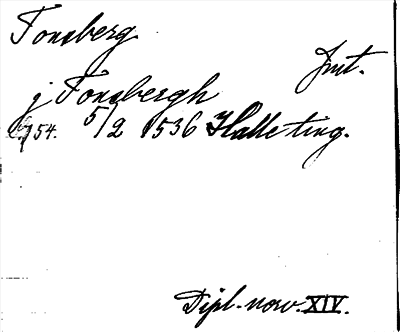 Tonsberg
Jnt.
j Tonsbergh
754. 5/2 1536 Halleting.
Dipl. norv. XIV.